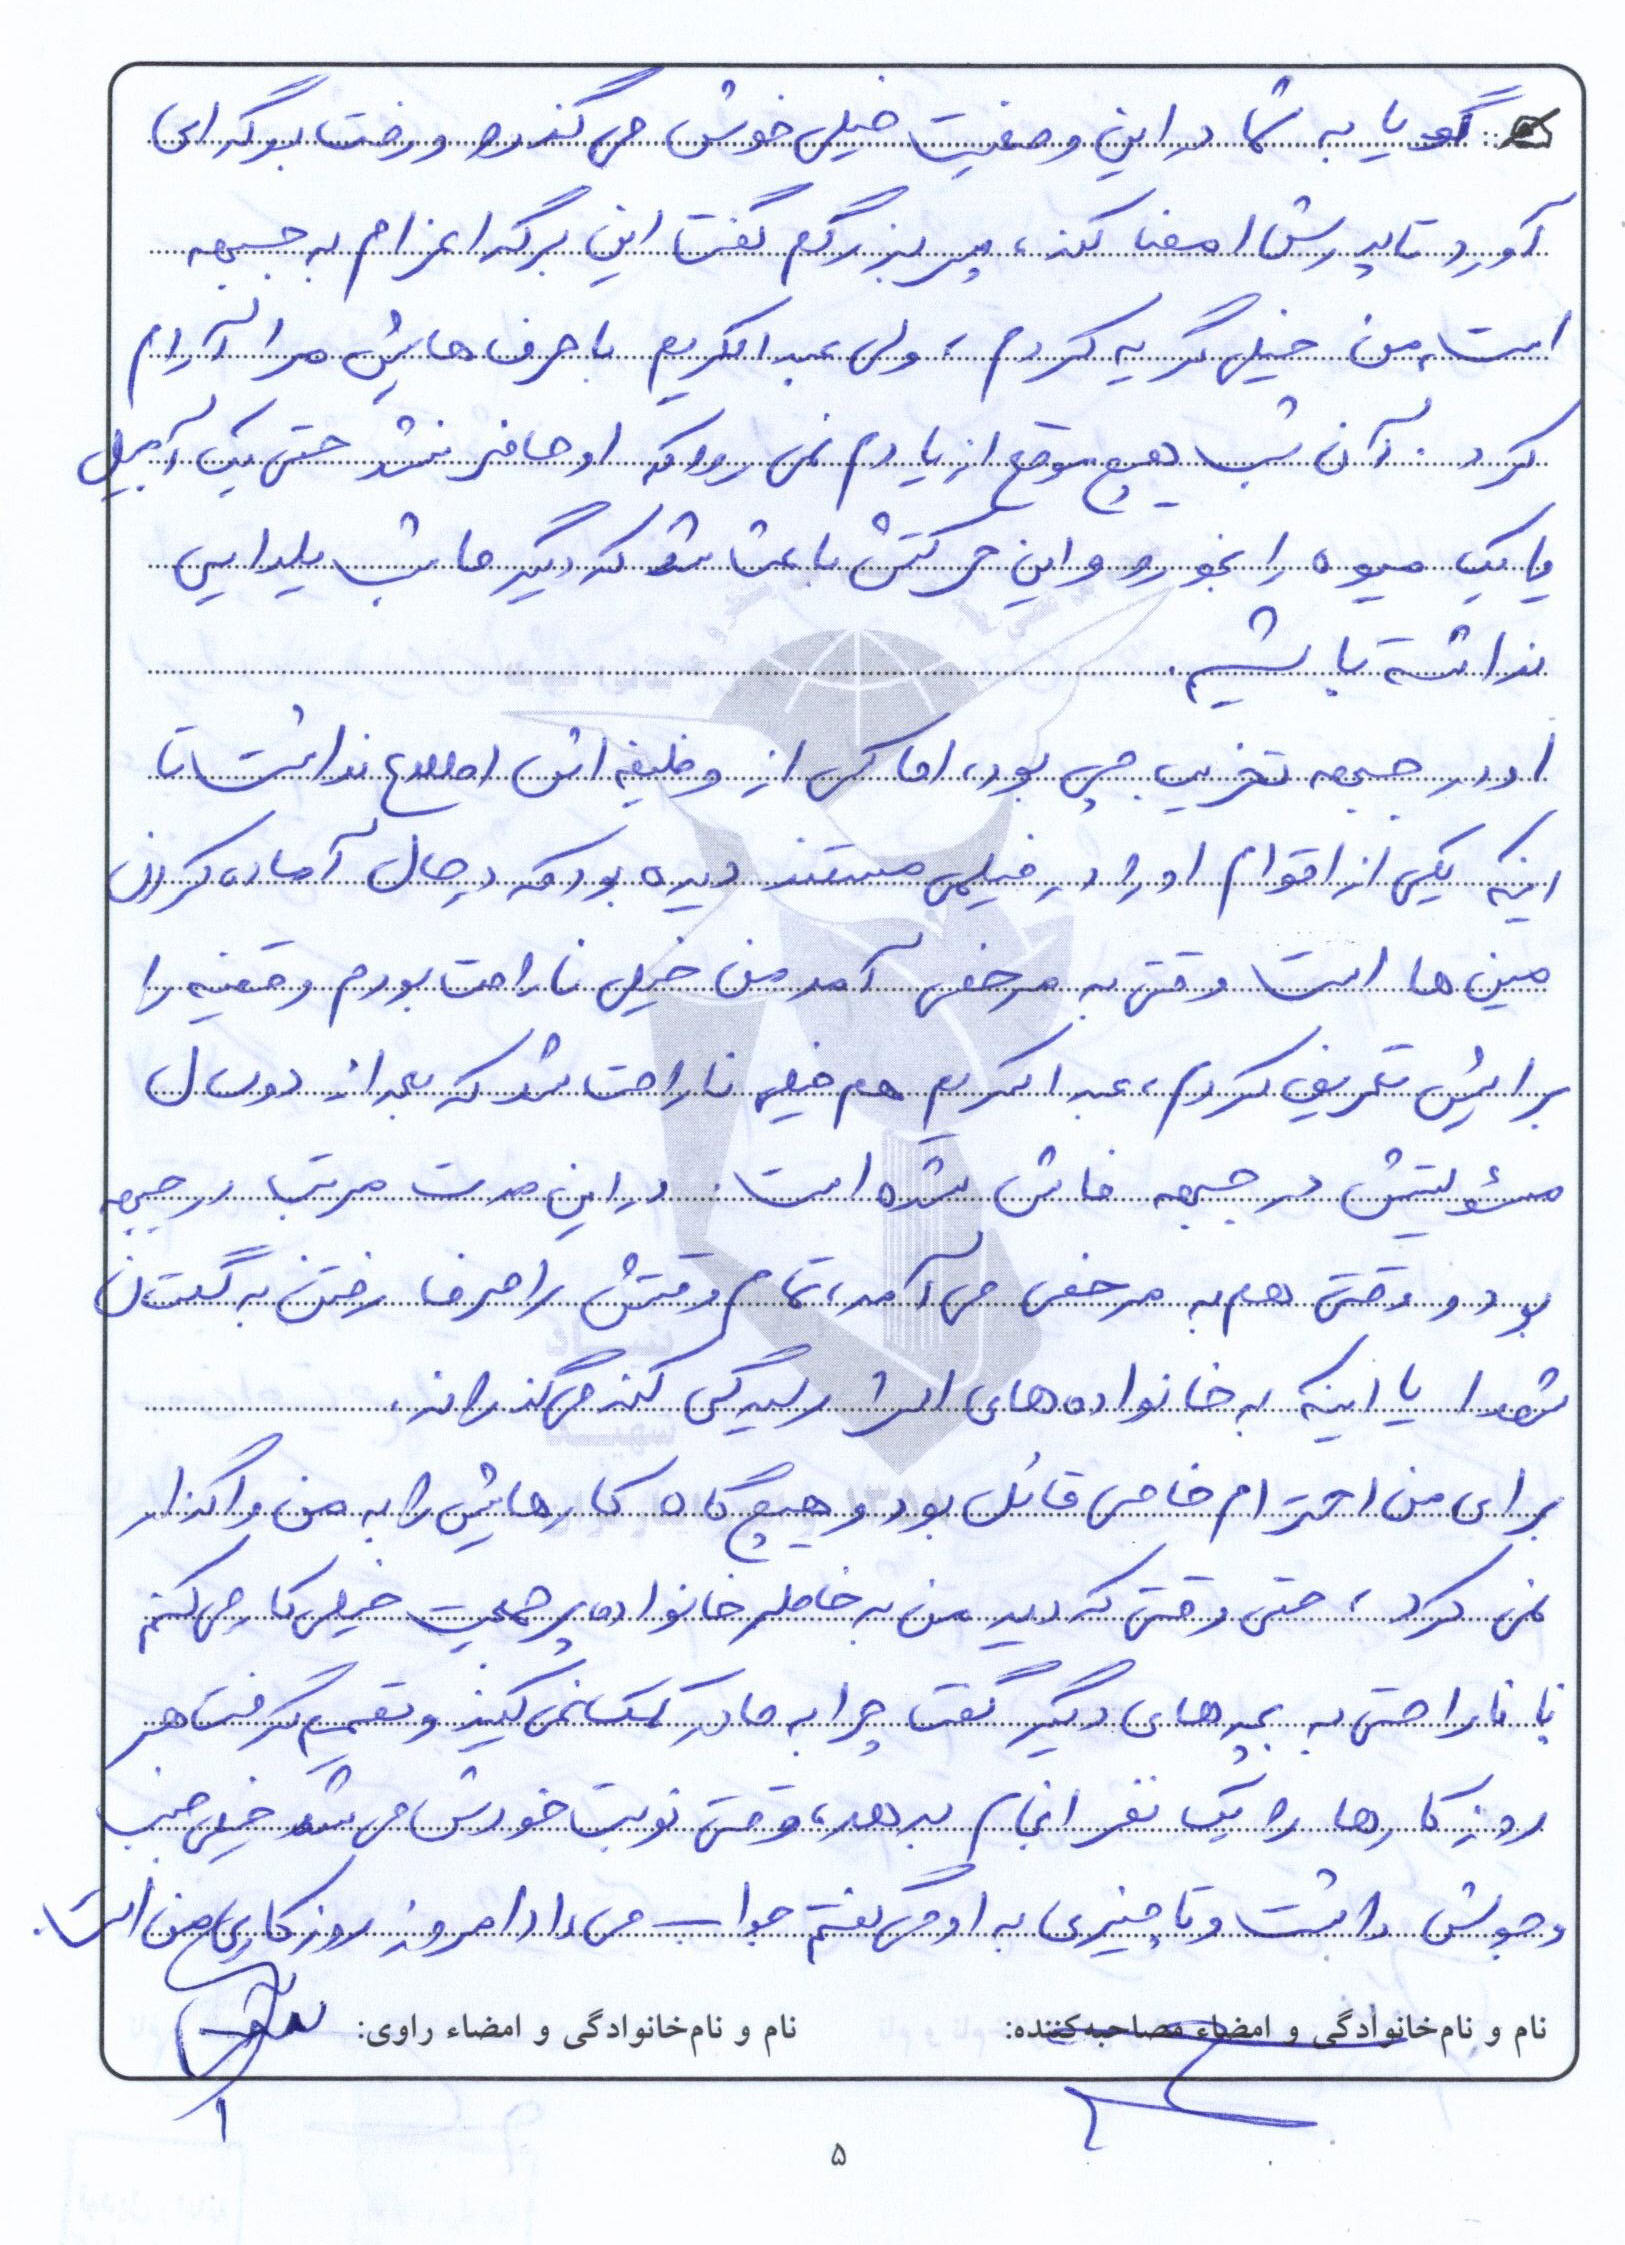 گویا به شما در این وضعیت خیلی خوش می گذرد و رفت برگه ای
آورد تا پدرش امضا کند، پدر بزرگم گفت این برگه اعزام به جبهه
است، من خیلی گریه کردم، ولی عبدالکریم با حرف هایش مرا آرام
کرد. آن شب هیچ موقع از یادم نمی رود که او حاضر نشد حتی یک آجیل
یا یک میوه را بخورد و این حرکتش باعث شد که دیگر ما شب یلدایی
نداشته باشیم.
او در جبهه تخریب چی بود، اما کسی از وظیفه اش اطلاع نداشت تا
اینکه یکی از اقوام او را در فیلمی مستند دیده بود که در حال آماده کردن
مین ها است وقتی به مرخصی آمد من خیلی ناراحت بودم و قضیه را
برایش تعریف کردم، عبدالکریم هم خیلی ناراحت شد که بعد از دو سال
مسئولیتش در جبهه فاش شده است. در این مدت مرتب در جبهه
بود و وقتی هم به مرخصی می آمد، تمام وقتش را صرف رفتن به گلستان
شهدا یا اینکه به خانواده های اسرا رسیدگی کند می گذراند.
برای من احترام خاصی قائل بود و هیچ گاه کارهایش را به من واگذار
نمی کرد، حتی وقتی که دید من به خاطر خانواده پر جمعیت خیلی کار می کنم
با ناراحتی به بچه های دیگر گفت چرا به مادر کمک نمی کنید و تصمیم گرفت هر
روز کارها را یک نفر انجام بدهد، وقتی نوبت خودش می شد خیلی جنب
و جوش داشت و تا چیزی به او می گفتم جواب می داد امروز روز کاری من است.
نام و نام‌خانوادگی و امضاء مصاحبه‌کننده: نام و نام‌خانوادگی و امضاء راوی:
۵